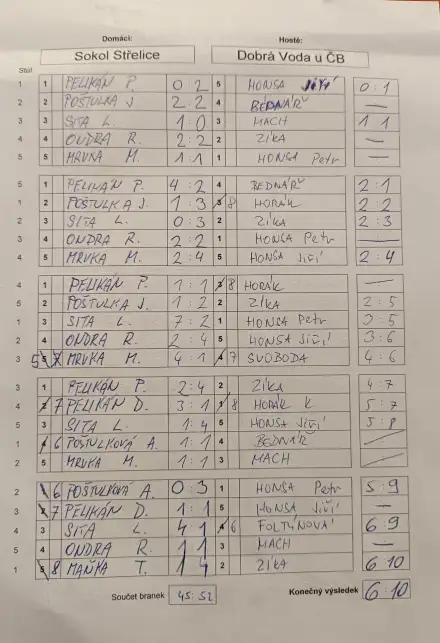 Domácí: Hosté:
Sokol Střelice Dobrá Voda u ČB
Stůl
1 1 PELIKÁN P. 0 2 5 HONSA JIŘÍ 0:1
2 2 POŠTULKA J. 2:2 4 BEDNÁŘ —
3 3 SITA L. 1:0 3 MACH 1 1
4 4 ONDRA R. 2:2 2 ZÍKA —
5 5 MRVKA M. 1:1 1 HONSA Petr —
5 1 PELIKÁN P. 4:2 4 BEDNÁŘ 2:1
1 2 POŠTULKA J. 1:3 8 HORÁK 2 2
2 3 SITA L. 0:3 2 ZÍKA 2:3
3 4 ONDRA R. 2:2 1 HONSA Petr —
4 5 MRVKA M. 2:4 5 HONSA Jiří 2:4
4 1 PELIKÁN P. 1:1 8 HORÁK —
5 2 POŠTULKA J. 1:2 2 ZÍKA 2:5
1 3 SITA L. 7:2 1 HONSA Petr 3:5
2 4 ONDRA R. 2:4 5 HONSA Jiří 3:6
3 5 MRVKA M. 4:1 7 SVOBODA 4:6
3 1 PELIKÁN P. 2:4 2 ZÍKA 4:7
4 7 PELIKÁN D. 3:1 8 HORÁK K 5:7
5 3 SITA L. 1:4 5 HONSA Jiří 5:8
1 6 POŠTULKOVÁ A. 1:1 4 BEDNÁŘ
2 5 MRVKA M. 1:1 3 MACH
2 6 POŠTULKOVÁ A. 0:3 1 HONSA Petr 5:9
3 7 PELIKÁN D. 1:1 5 HONSA Jiří —
4 3 SITA L. 4 1 6 FOLTÝNOVÁ 6 9
5 4 ONDRA R. 1 1 3 MACH —
1 8 MAŇKA T. 1 4 2 ZÍKA 6 10
Součet branek 45:52 Konečný výsledek 6:10